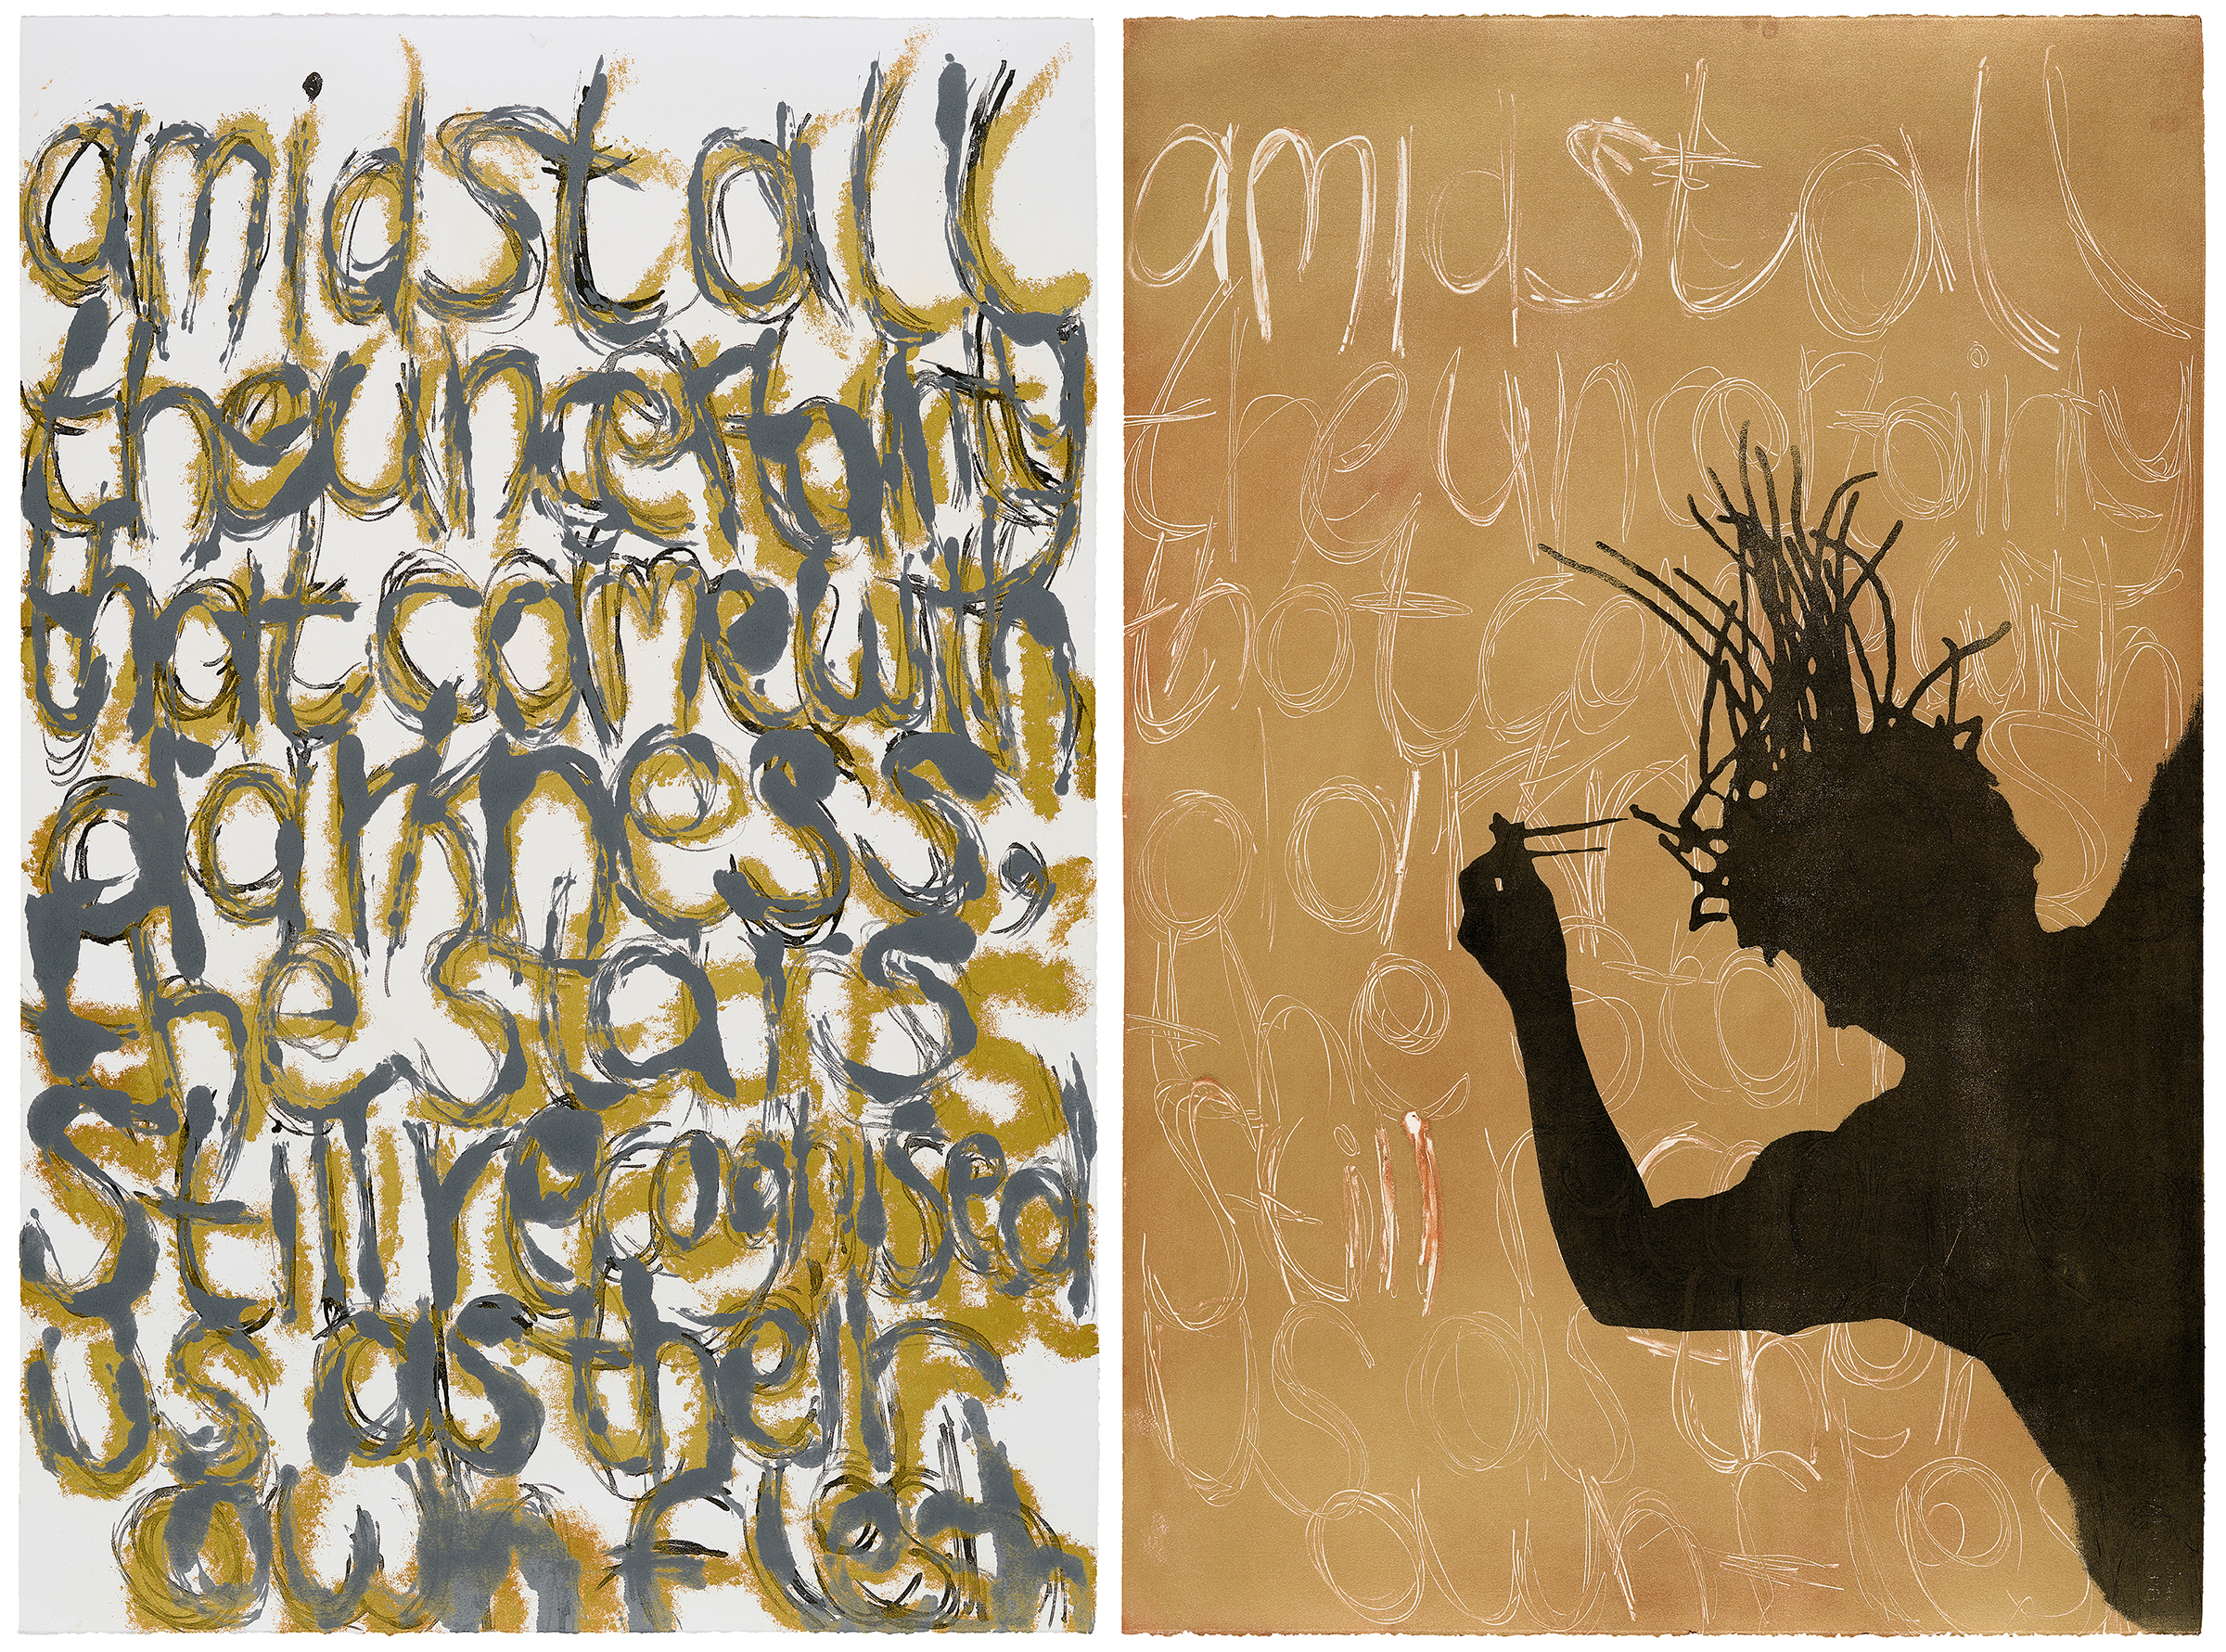 amidst all
the uncertainty
that came with
darkness,
the stars
still recognised
us as their
own flesh
amidst all
the uncertainty
that with
the
still
us as their
own